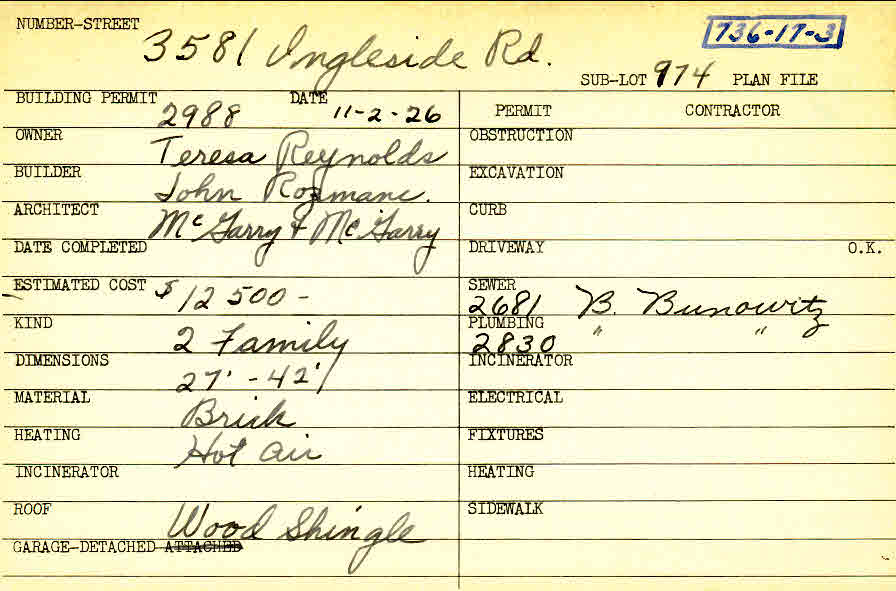 NUMBER-STREET 3581 Ingleside Rd. 736-17-3
SUB-LOT 974 PLAN FILE
BUILDING PERMIT 2988 DATE 11-2-26
PERMIT CONTRACTOR
OWNER Teresa Reynolds
OBSTRUCTION
BUILDER John Rozmanc.
EXCAVATION
ARCHITECT McGarry & McGarry
CURB
DATE COMPLETED
DRIVEWAY O.K.
ESTIMATED COST $12500-
SEWER 2681 B. Bunowitz
KIND 2 Family
PLUMBING 2830 " "
DIMENSIONS 27' - 42'
INCINERATOR
MATERIAL Brick
ELECTRICAL
HEATING Hot Air
FIXTURES
INCINERATOR
HEATING
ROOF Wood Shingle
SIDEWALK
GARAGE-DETACHED ATTACHED